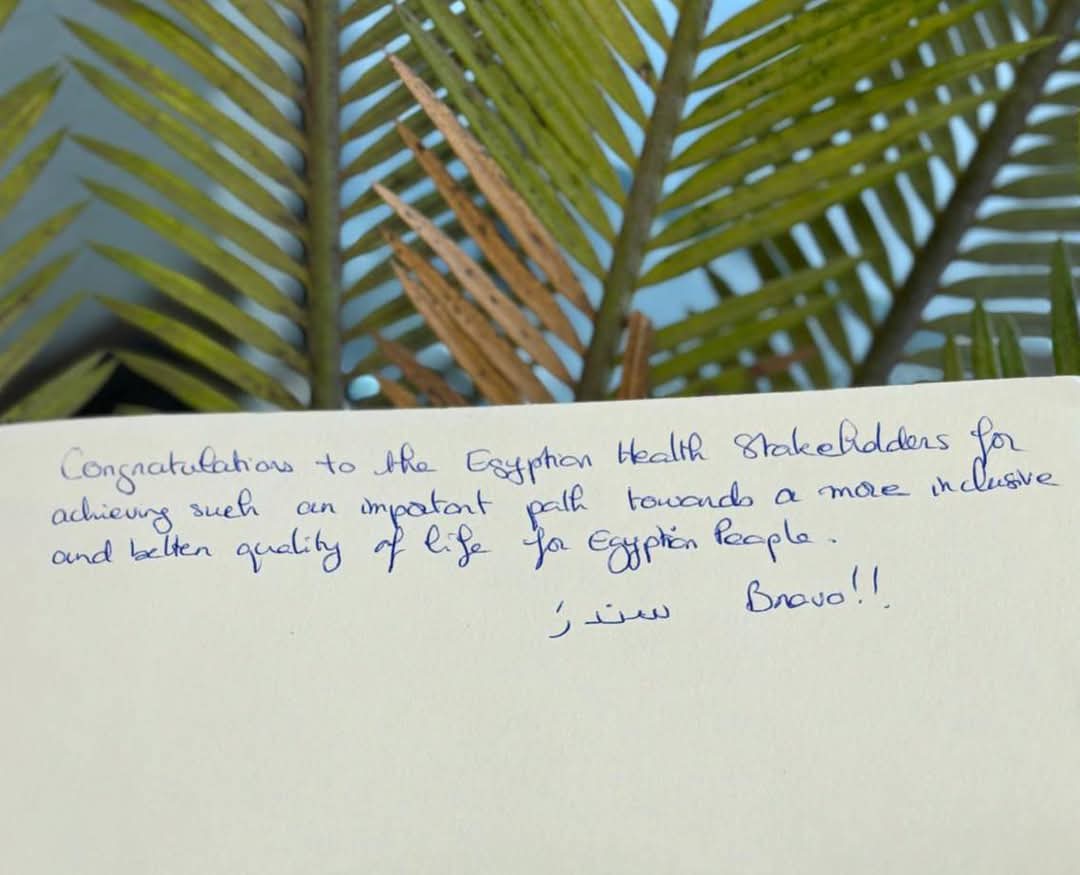 Congratulations to the Egyption Health Stakeholders for
achieving such an important path towards a more inclusive
and better quality of life for Egyption People.
Bravo!! سندز